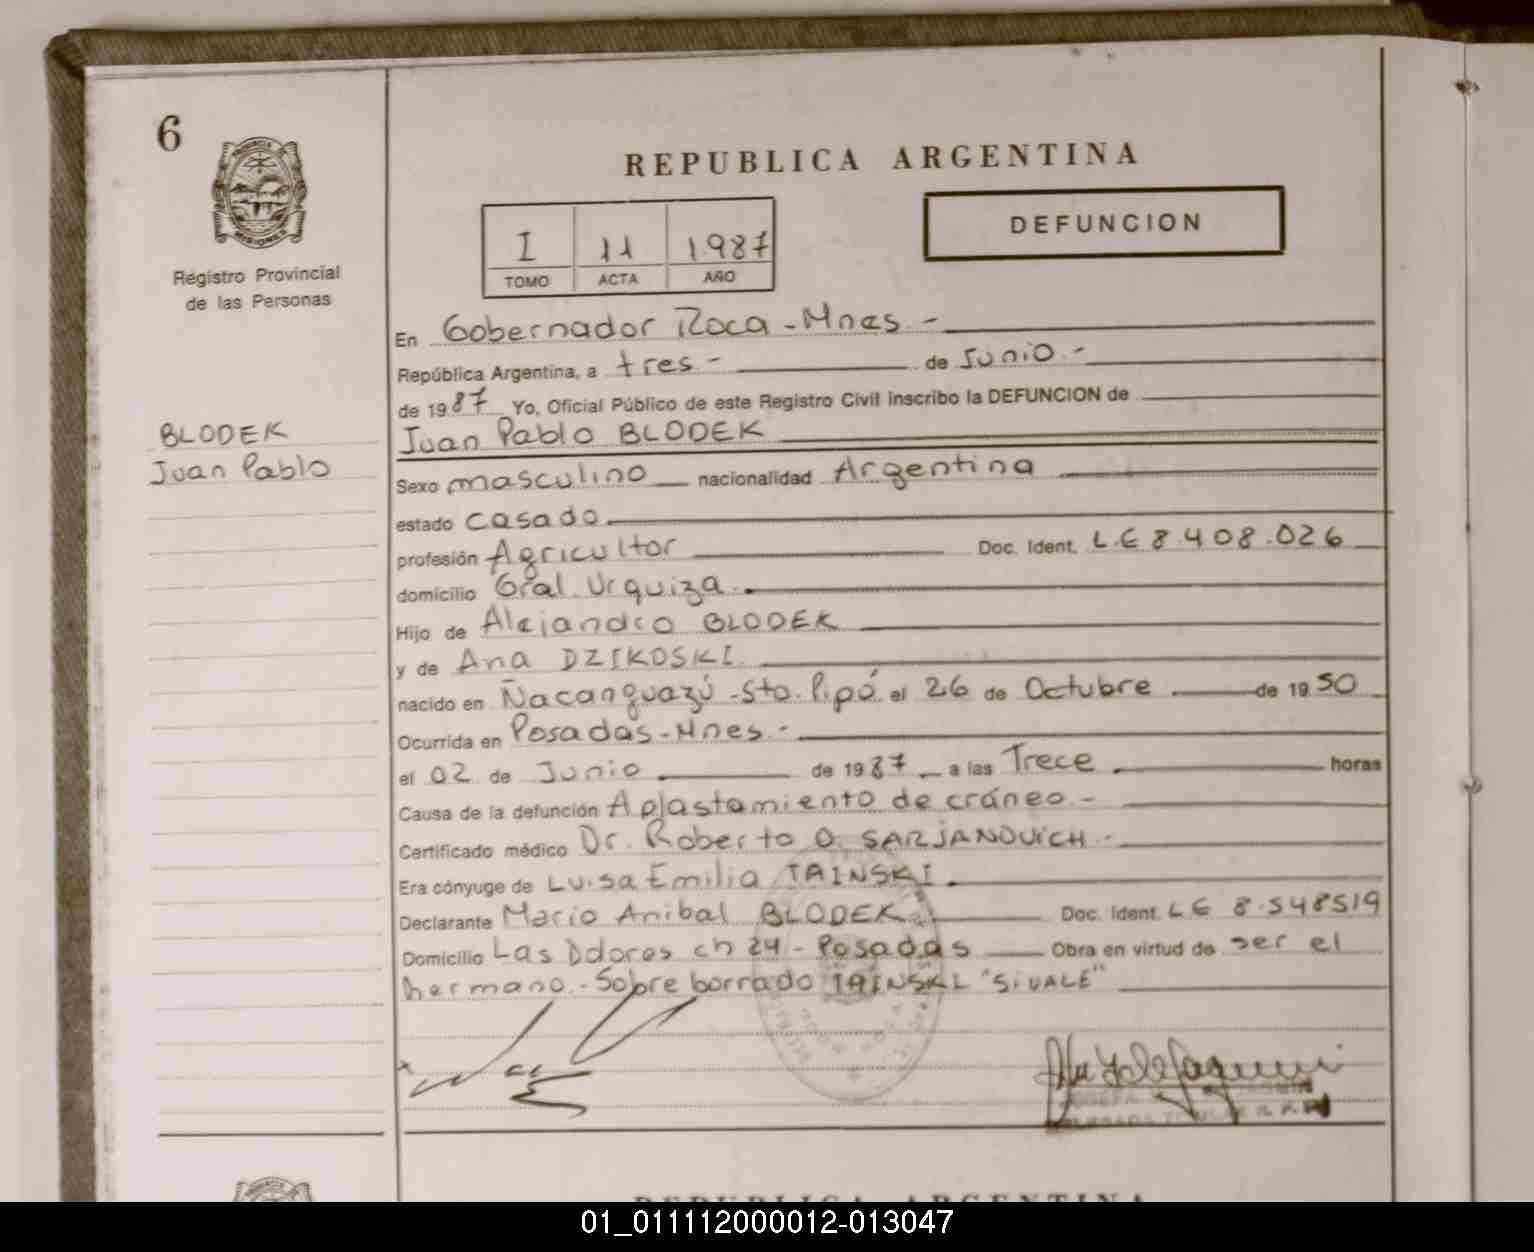 6
PROVINCIA DE
MISIONES
Registro Provincial
de las Personas
BLODEK
Juan Pablo
REPUBLICA ARGENTINA
I 11 1987
TOMO ACTA AÑO
DEFUNCION
En Gobernador Roca - Mnes. -
República Argentina, a tres - de Junio. -
de 1987 Yo, Oficial Público de este Registro Civil inscribo la DEFUNCION de
Juan Pablo BLODEK
Sexo masculino nacionalidad Argentina
estado casado.
profesión Agricultor Doc. Ident. L.E 8.408.026
domicilio Gral. Urquiza.
Hijo de Alejandro BLODEK
y de Ana DZIKOSKI.
nacido en Ñacanguazú - Sto. Pipó el 26 de Octubre de 1950
Ocurrida en Posadas - Mnes. -
el 02 de Junio de 1987 a las Trece horas
Causa de la defunción Aplastamiento de cráneo. -
Certificado médico Dr. Roberto O. SARJANOVICH. -
Era cónyuge de Luisa Emilia IAINSKI.
Declarante Mario Anibal BLODEK Doc. Ident. L E 8.548519
Domicilio Las Dolores ch 24 - Posadas Obra en virtud de ser el
hermano. - Sobre borrado IAINSKI "Si VALE"
REPUBLICA ARGENTINA
01_011112000012-013047